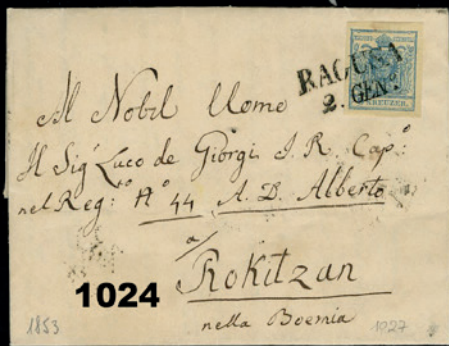 RAGUSA
2. GEN:
KREUZER.
Al Nobil Uomo
Il Sigr Luco de Giorgi I. R. Capo:
nel Reg:to No 44 A. D. Alberto
a/
Rokitzan
nella Boemia
1024
1853
1927